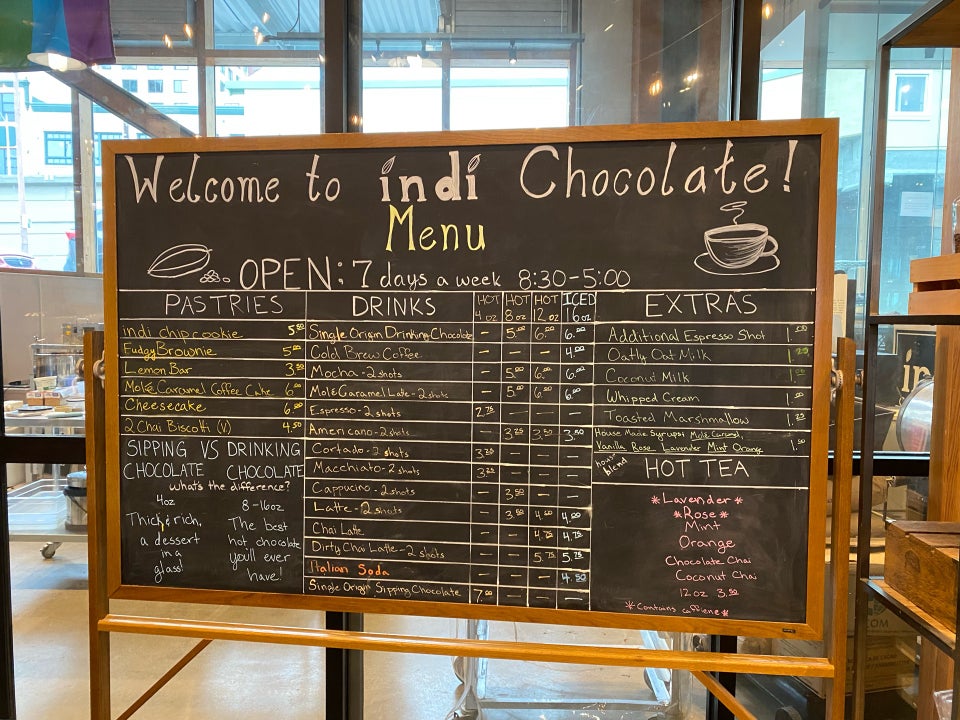 Welcome to indi Chocolate!
Menu
OPEN: 7 days a week 8:30-5:00
PASTRIES
indi chip cookie 5.00
Fudgy Brownie 5.00
Lemon Bar 3.50
Molé Caramel Coffee Cake 6.00
Cheesecake 6.00
2 Chai Biscotti (V) 4.50
SIPPING VS DRINKING
CHOCOLATE CHOCOLATE
what's the difference?
4oz
Thick & rich,
a dessert
in a
glass!
8-16oz
The best
hot chocolate
you'll ever
have!
DRINKS HOT 4oz HOT 8oz HOT 12oz ICED 16oz
Single Origin Drinking Chocolate - 5.00 6.00 6.00
Cold Brew Coffee - - - 4.00
Mocha - 2 shots - 5.00 6.00 6.00
Molé Caramel Latte - 2 shots - 5.00 6.00 6.00
Espresso - 2 shots 2.75 - - -
Americano - 2 shots - 3.25 3.50 3.50
Cortado - 2 shots - - -
Macchiato - 2 shots - - -
Cappucino - 2 shots - 3.50 - -
Latte - 2 shots - 3.50 4.00 4.00
Chai Latte - - 4.75 4.75
Dirty Chai Latte - 2 shots - - 5.75 5.75
Italian Soda - - - 4.50
Single Origin Sipping Chocolate 7.00 - - -
EXTRAS
Additional Espresso Shot 1.00
Oatly Oat Milk
Coconut Milk
Whipped Cream
Toasted Marshmallow
House Made Syrups: Molé Caramel,
Vanilla Rose Lavender Mint Orange 1.50
house blend
HOT TEA
*Lavender*
*Rose*
Mint
Orange
Chocolate Chai
Coconut Chai
12oz 3.50
*Contains caffiene*
in